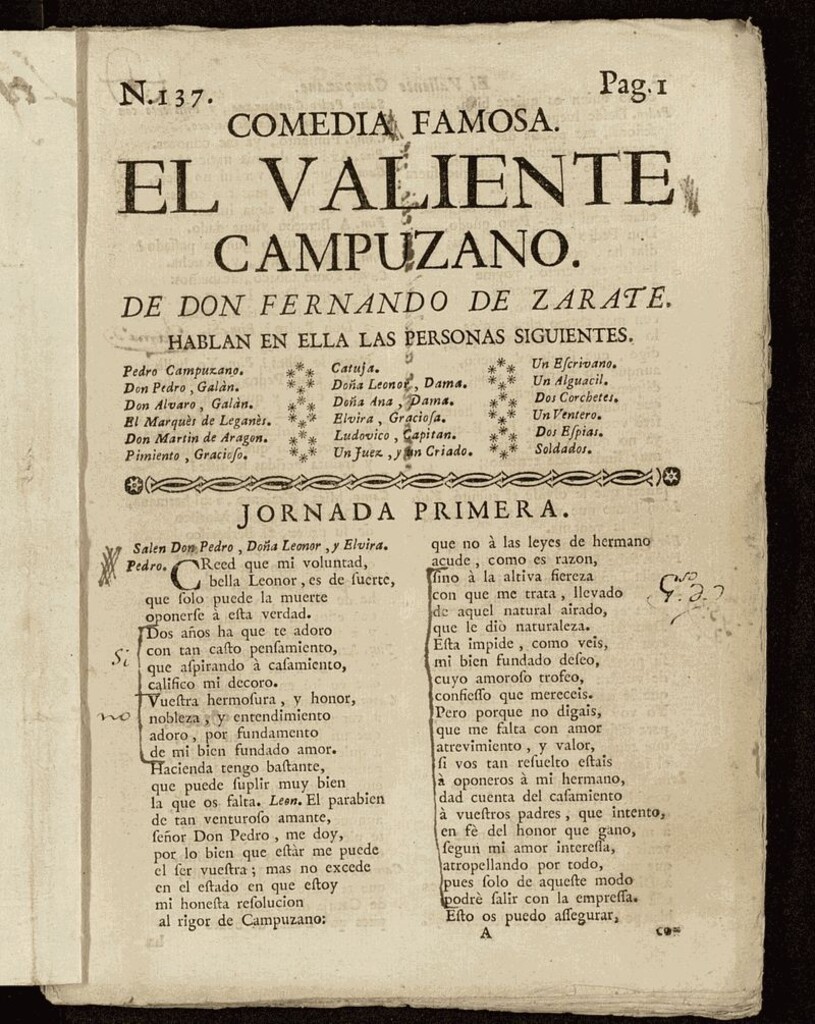 N.137.
Pag.1
COMEDIA FAMOSA.
EL VALIENTE
CAMPUZANO.
DE DON FERNANDO DE ZARATE.
HABLAN EN ELLA LAS PERSONAS SIGUIENTES.
Pedro Campuzano.
Don Pedro, Galàn.
Don Alvaro, Galàn.
El Marquès de Leganès.
Don Martin de Aragon.
Pimiento, Gracioſo.
Catuja.
Doña Leonor, Dama.
Doña Ana, Dama.
Elvira, Gracioſa.
Ludovico, Capitan.
Un Juez, y un Criado.
Un Eſcrivano.
Un Alguacil.
Dos Corchetes.
Un Ventero.
Dos Eſpias.
Soldados.
JORNADA PRIMERA.
Salen Don Pedro, Doña Leonor, y Elvira.
Pedro. CReed que mi voluntad,
bella Leonor, es de ſuerte,
que ſolo puede la muerte
oponerſe à eſta verdad.
Dos años ha que te adoro
con tan caſto penſamiento,
que aſpirando à caſamiento,
Si
califico mi decoro.
Vueſtra hermoſura, y honor,
no
nobleza, y entendimiento
adoro, por fundamento
de mi bien fundado amor.
Hacienda tengo baſtante,
que puede ſuplir muy bien
la que os falta. Leon. El parabien
de tan venturoſo amante,
ſeñor Don Pedro, me doy,
por lo bien que eſtàr me puede
el ſer vueſtra; mas no excede
en el eſtado en que eſtoy
mi honeſta reſolucion
al rigor de Campuzano:
que no à las leyes de hermano
acude, como es razon,
ſino à la altiva fiereza
con que me trata, llevado
de aquel natural airado,
que le diò naturaleza.
Eſta impide, como veis,
mi bien fundado deſeo,
cuyo amoroſo trofeo,
confieſſo que mereceis.
Pero porque no digais,
que me falta con amor
atrevimiento, y valor,
ſi vos tan reſuelto eſtais
à oponeros à mi hermano,
dad cuenta del caſamiento
à vueſtros padres, que intento,
en fè del honor que gano,
ſegun mi amor intereſſa,
atropellando por todo,
pues ſolo de aqueſte modo
podrè ſalir con la empreſſa.
Eſto os puedo aſſegurar,
A
co-